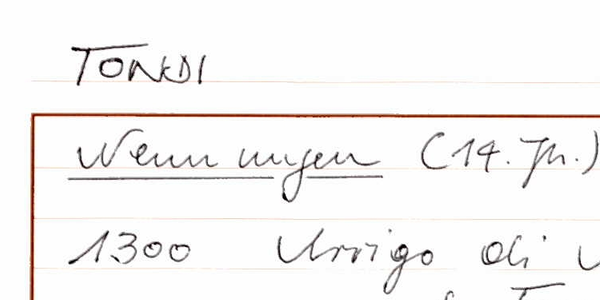 TONDI
Nennungen (14. Jh.)
1300 Arrigo di